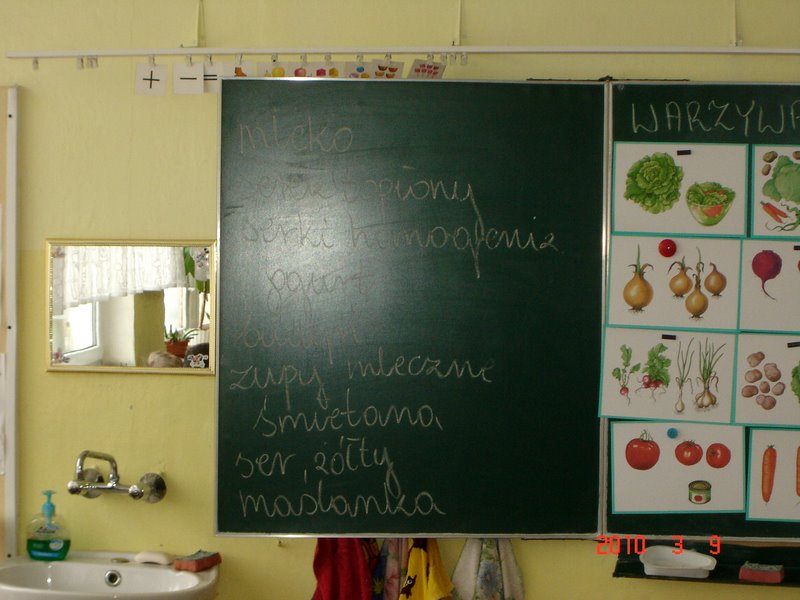 + − =
mleko
serek topiony
serki homogeniz
jogurt
budyń
zupy mleczne
śmietana
ser żółty
maślanka
WARZYWA
2010 3 9